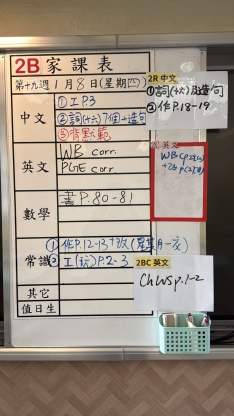 2B 家課表
第十九週 1月8日(星期四)
中文
① 工 P.3
② 詞(十六)7個+造句
③ 背默範
英文
WB corr.
PGE corr.
數學
書 P.80-81
常識
① 作P.12-13+改(星期一交)
② 工(玩)P.2-3
其它
值日生
2R 中文
① 詞(十六)及造句
② 作P.18-19
2C 英文
WB
2BC 英文
Ch WS p.1-2